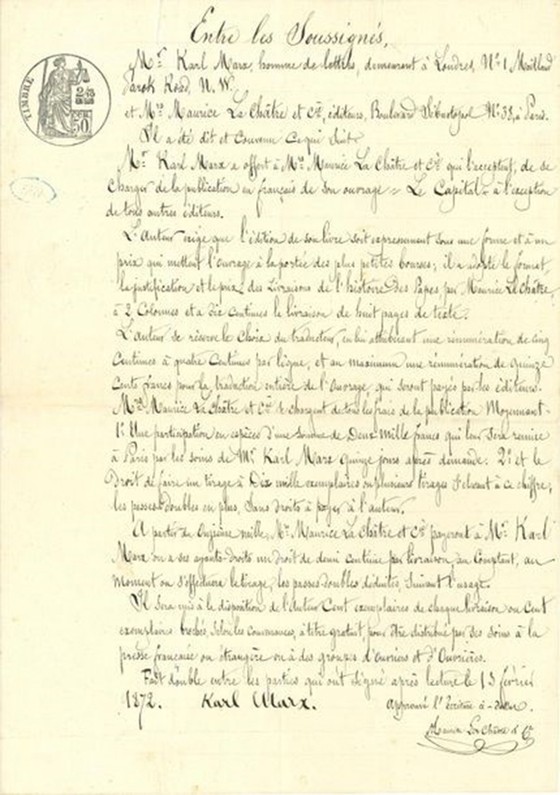 Entre les Soussignés,
TIMBRE
50
Mr. Karl Marx, homme de lettres, demeurant à Londres, No. 1 Maitland
Park Road, N. W.
et Mrs. Maurice La Châtre et Cie, éditeurs, Boulevard Sébastopol No. 38, à Paris.
Il a été dit et Convenu Ce qui suit.
Mr. Karl Marx a offert à Mrs. Maurice La Châtre et Cie qui l'acceptent, de se
Charger de la publication en français de son ouvrage « Le Capital » à l'exception
de tous autres éditeurs.
L'Auteur exige que l'édition de son livre soit expressement sous une forme et à un
prix qui mettent l'Ouvrage à la portée des plus petites bourses; il a adopté le format
la justification et le prix des Livraisons de l'histoire des Papes par Maurice La Châtre,
à 2 Colonnes et à Dix Centimes la livraison de huit pages de texte.
L'auteur se réserve le Choix du traducteur, en lui attribuant une rémunération de cinq
Centimes à quatre Centimes par ligne, et au maximum une rémunération de quinze
Cents francs pour la traduction entière de l'Ouvrage, qui seront payés par les éditeurs.
Mrs. Maurice La Châtre et Cie se chargent de tous les frais de la publication Moyennant.
1º Une participation en espèces d'une Somme de Deux Mille francs qui leur sera remise
à Paris par les soins de Mr. Karl Marx quinze jours après demande. 2º et le
Droit de faire un tirage à Dix mille exemplaires ou plusieurs tirages s'élevant à ce chiffre,
les passes doubles en plus, Sans droits à payer à l'auteur.
A partir du Onzième mille, Mrs. Maurice La Châtre et Cie payeront à Mr. Karl
Marx ou a ses ayants-droits un droit de demi Centime par livraison au Comptant, au
moment où s'effectuera le tirage, les passes doubles déduites, Suivant l'usage.
Il sera mis à la disposition de l'Auteur Cent exemplaires de chaque livraison ou Cent
exemplaires brochés, Selon les Convenances, à titre gratuit, pour être distribué par ses soins à la
presse française ou étrangère ou à des groupes d'Ouvriers et d'Ouvrières.
Fait double entre les parties qui ont signé après lecture le 13 février
1872. Karl Marx. Approuvé l'écriture
Maurice La Châtre & Cie